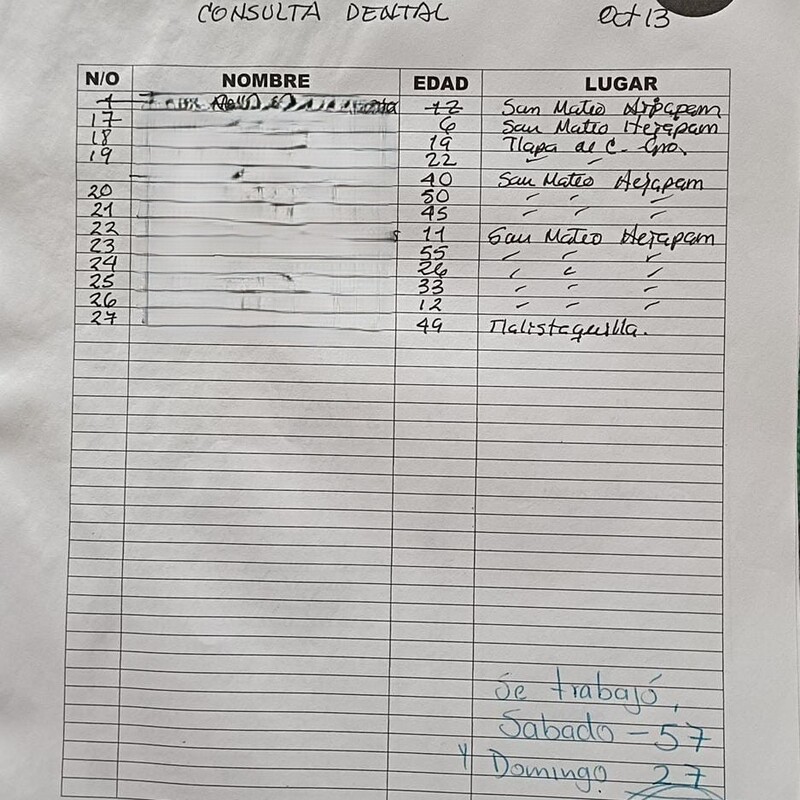 CONSULTA DENTAL Oct 13
N/O NOMBRE EDAD LUGAR
1 12 San Mateo
17 6 San Mateo
18 19 Tlapa de C. Gro.
19 22 " "
40 San Mateo
20 50 " " "
21 45 " " "
22 11 San Mateo
23 55 " " "
24 26 " " "
25 33 " " "
26 12 " " "
27 49 Tlalistaquilla.
Se trabajó,
Sabado - 57
y Domingo 27